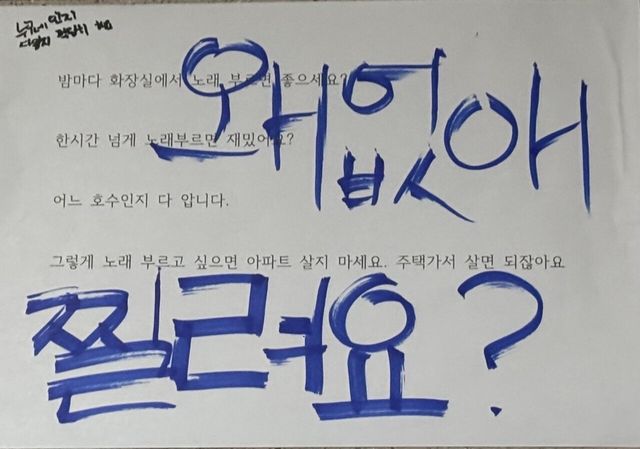 밤마다 화장실에서 노래 부르면 좋으세요?
한시간 넘게 노래부르면 재밌어요?
어느 호수인지 다 압니다.
그렇게 노래 부르고 싶으면 아파트 살지 마세요. 주택가서 살면 되잖아요
왜 없애
찔려요?